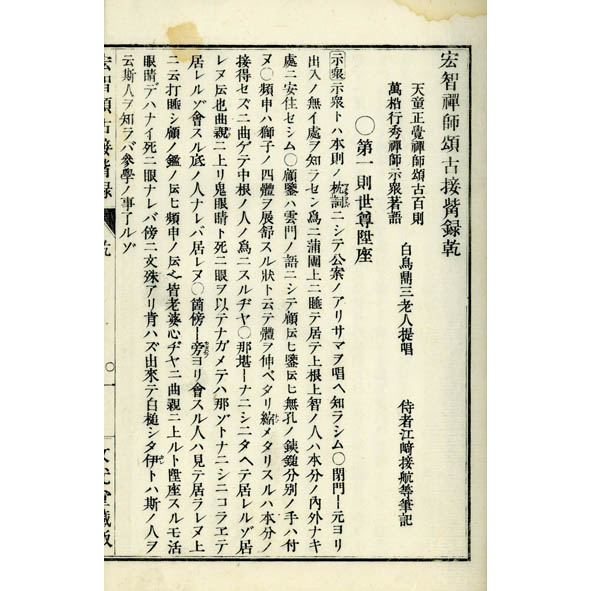 宏智禪師頌古接觜録乾
天童正覺禪師頌古百則
萬松行秀禪師示衆著語
白鳥鼎三老人提唱
侍者江﨑接航等筆記
〇第一則世尊陞座
示衆示衆トハ本則ノ枕詞ニシテ公案ノアリサマヲ唱ヘ知ラシム〇閉門ー元ヨリ
出入ノ無イ處ヲ知ラセン爲ニ蒲團上ニ睡テ居テ上根上智ノ人ハ本分ノ内外ナキ
處ニ安住セシム〇顧鑒ハ雲門ノ語ニシテ顧𠮧ヒ鑒𠮧ヒ無孔ノ鐵鎚分別ノ手ハ付
ヌ〇頻申ハ獅子ノ四體ヲ展舒スル狀ト云テ體ヲ伸ベタリ縮メタリスルハ本分ノ
接得セズニ曲ゲテ中根ノ人ノ爲ニスルヂヤ〇那堪ーナニシニタヘテ居レルゾ居
レヌ𠮧也曲親ニ上リ鬼眼睛ト死ニ眼ヲ以テナガメテハ那ゾトナニシニコラヱテ
居レルゾ會スル底ノ人ナレバ居レヌ〇箇傍ー旁ヨリ會スル人ハ見テ居ラレヌ上
ニ云打睡シ顧ノ鑑ノ𠮧ヒ頻申ノ𠮧ヘ皆老婆心ヂヤニ曲親ニ上ルト陞座スルモ活
眼睛デハナイ死ニ眼ナレバ傍ニ文殊アリ肯ハズ出來テ白槌シタ伊トハ斯ノ人ヲ
云斯人ヲ知ラバ參學ノ事了ルゾ
宏智頌古接觜録
乾
〇一